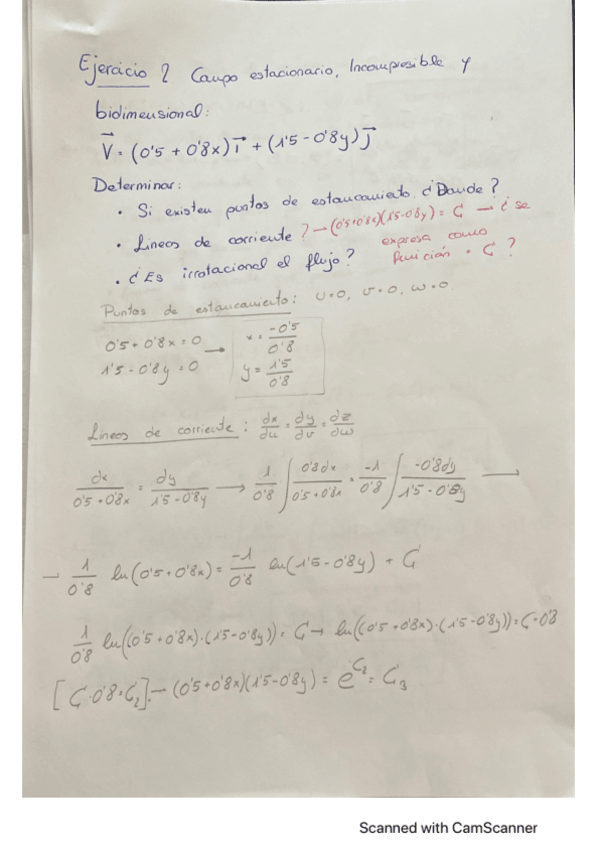 Ejercicio 2 Campo estacionario, Incompresible y
bidimensional:
V⃗ = (0'5 + 0'8x) i⃗ + (1'5 - 0'8y) j⃗
Determinar:
• Si existen puntos de estancamiento ¿Donde?
• Lineas de corriente ? → (0'5+0'8x)(1'5-0'8y) = C → ¿se
expresa como
función = C ?
• ¿Es irrotacional el flujo?
Puntos de estancamiento: u=0, v=0, w=0
0'5 + 0'8x = 0 → x = -0'5/0'8
1'5 - 0'8y = 0 y = 1'5/0'8
Lineas de corriente : dx/du = dy/dv = dz/dw
dx/(0'5+0'8x) = dy/(1'5-0'8y) → 1/0'8 ∫ 0'8dx/(0'5+0'8x) = -1/0'8 ∫ -0'8dy/(1'5-0'8y) →
→ 1/0'8 ln(0'5+0'8x) = -1/0'8 ln(1'5-0'8y) + C
1/0'8 ln((0'5+0'8x)·(1'5-0'8y)) = C → ln((0'5+0'8x)·(1'5-0'8y)) = C·0'8
[C·0'8 = C₂] → (0'5+0'8x)(1'5-0'8y) = e^C₂ = C₃
Scanned with CamScanner